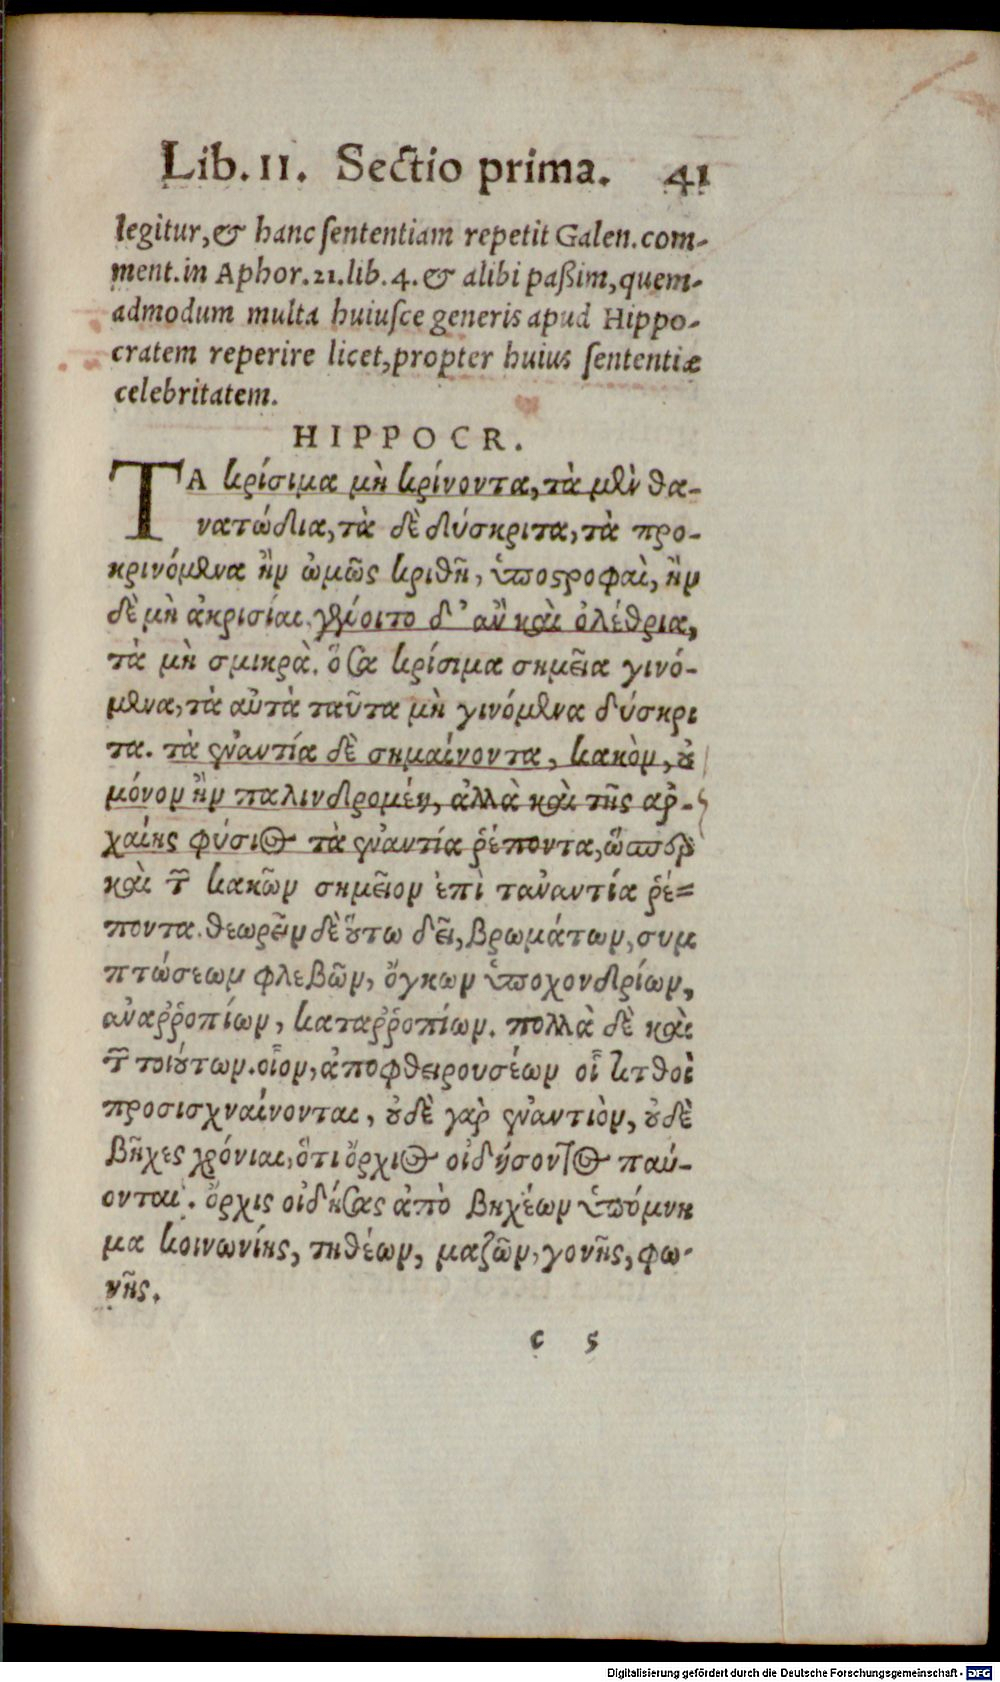 Lib. II. Sectio prima. 41
legitur, & hanc ſententiam repetit Galen. com-
ment. in Aphor. 21. lib. 4. & alibi paßim, quem-
admodum multa huiuſce generis apud Hippo-
cratem reperire licet, propter huius ſententiæ
celebritatem.
HIPPOCR.
ΤΑ κρίσιμα μὴ κρίνοντα, τὰ μὲν θα-
νατώδια, τὰ δὲ δύσκριτα, τὰ προ-
κρινόμενα ἢν ὠμῶς κριθῆ, ὑποςροφαὶ, ἢν
δὲ μὴ ἀκρισίαι. γένοιτο δ' ἂν καὶ ὀλέθρια,
τὰ μὴ σμικρὰ. ὅσα κρίσιμα σημεῖα γινό-
μενα, τὰ αὐτὰ ταῦτα μὴ γινόμενα δύσκρι
τα. τὰ ἐναντία δὲ σημαίνοντα, κακὸν, ȣ
μόνον ἢν παλινδρομέῃ, ἀλλὰ καὶ τῆς ἀρ-
χαίης φύσιος τὰ ἐναντία ῥέποντα, ὥσπερ
καὶ τῶν κακῶν σημεῖον ἐπὶ τἀναντία ῥέ=
ποντα. θεωρεῖν δὲ ȣ̔́τω δεῖ, βρωμάτων, συμ
πτώσεων φλεβῶν, ὄγκων ὑποχονδρίων,
ἀναῤῥοπίων, καταῤῥοπίων. πολλὰ δὲ καὶ
τῶν τοιȣ́των. οἷον, ἀποφθειρουσέων οἱ τιτθοὶ
προσισχναίνονται, ȣδὲ γὰρ ἐναντιὸν, ȣδὲ
βῆχες χρόνιαι, ὅτι ὄρχιος οἰδήσαντος παύ-
ονται. ὄρχις οἰδήσας ἀπὸ βηχέων ὑπόμνη
μα κοινωνίης, τηθέων, μαζῶν, γονῆς, φω-
νῆς.
c 5
Digitalisierung gefördert durch die Deutsche Forschungsgemeinschaft - DFG